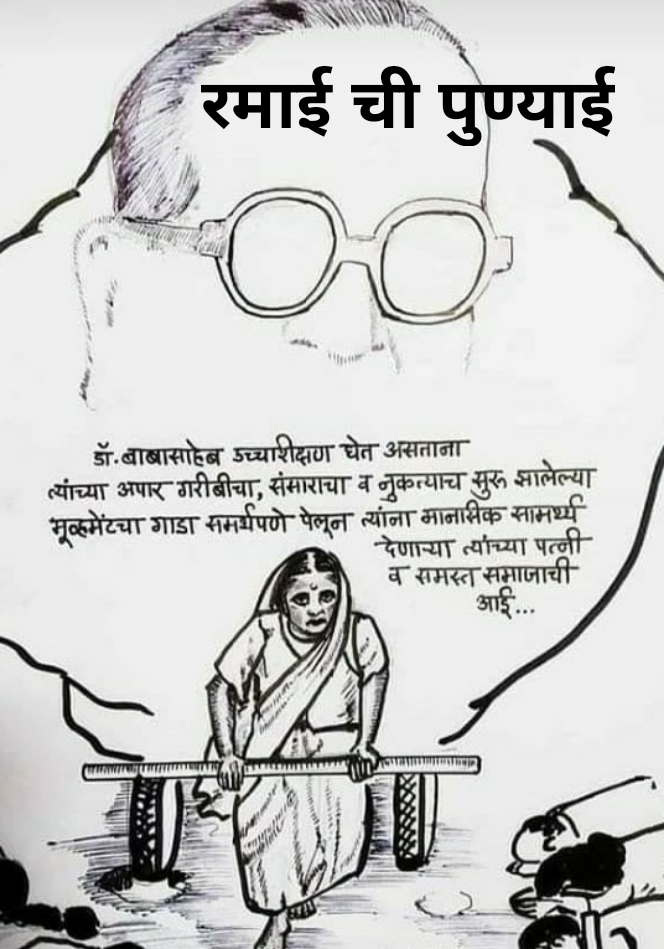 रमाई ची पुण्याई
डॉ. बाबासाहेब उच्चशिक्षण घेत असताना
त्यांच्या अपार गरीबीचा, संसाराचा व नुकत्याच सुरू झालेल्या
मूव्हमेंटचा गाडा समर्थपणे पेलून त्यांना मानसिक सामर्थ्य
देणाऱ्या त्यांच्या पत्नी
व समस्त समाजाची
आई...